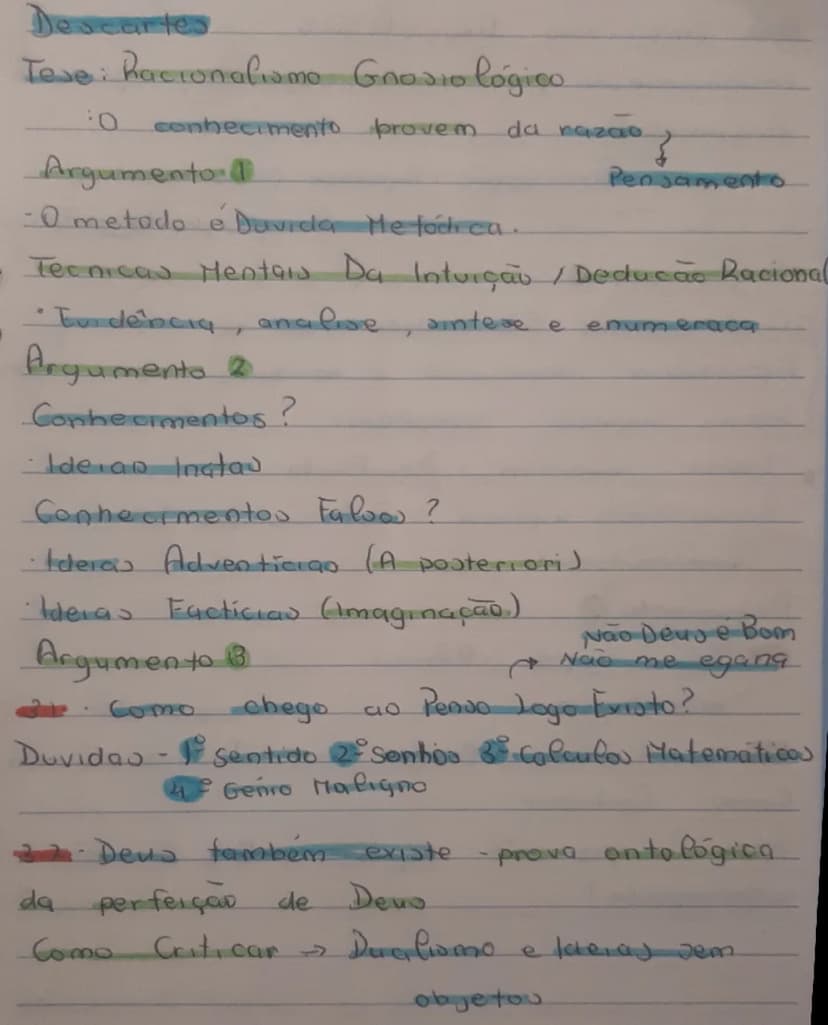 Descartes
Tese: Racionalismo Gnosiológico
:O conhecimento provem da razão
Argumento 1
Pensamento
-O metodo é Duvida Metódica.
Tecnicas Mentais Da Intuição / Deducão Racional
• Evidência, analise, sintese e enumeraca
Argumento 2
Conhecimentos?
·Ideias Inatas
Conhecimentos Falsos?
·Ideias Adventícias (A posteriori)
·Ideias Facticias (imaginação)
Não Deus é Bom
Argumento 3 → Não me egana
3.1 · Como chego ao Penso Logo Existo?
Duvidas - 1º sentido 2º Sonhos 3º Calculos Matemáticos
4º Genio Maligno
3.2 · Deus também existe - prova ontológica
da perfeição de Deus
Como Criticar → Dualismo e Ideias sem
objetos